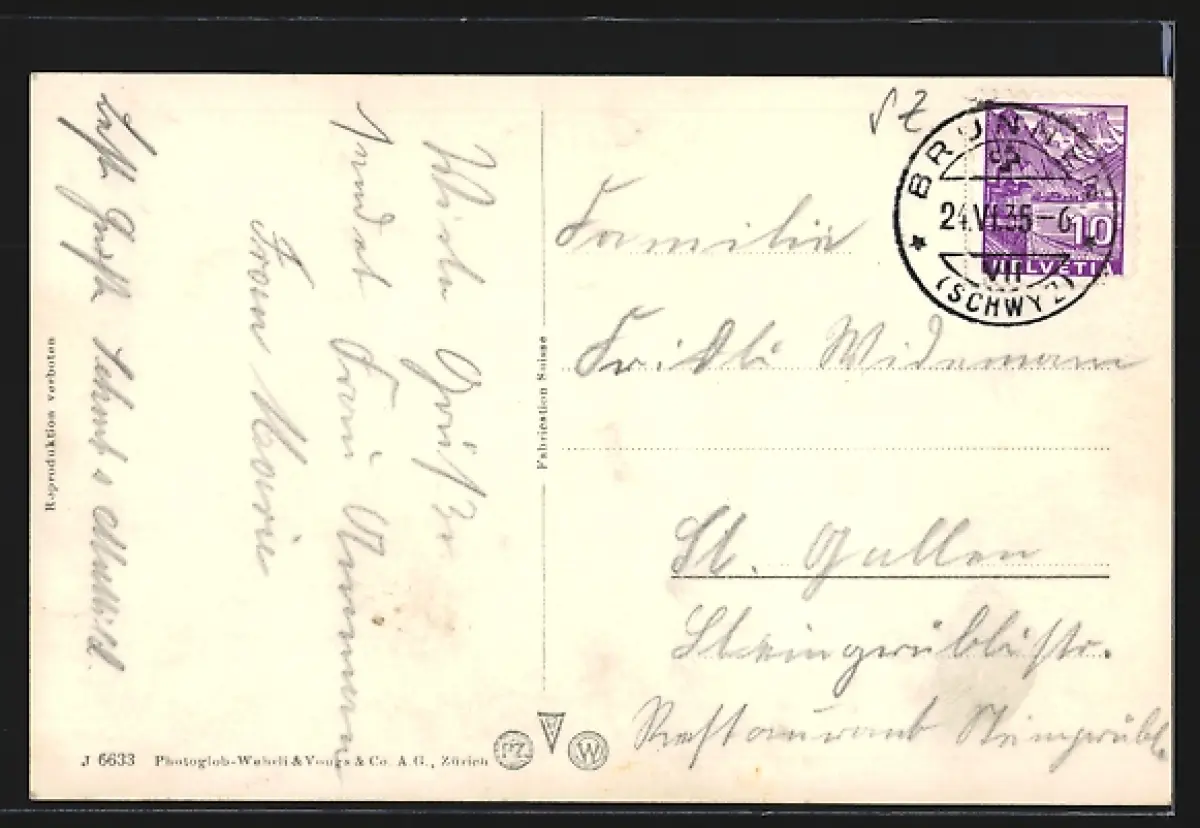 Viele Grüße
sendet Frau
Frau Marie
Beste Grüße
SZ
BRUNNEN
24.VI.35-6
VII
(SCHWYZ)
10
HELVETIA
Familie
Fridli Widemann
St. Gallen
Steingrüblistr.
Restaurant Steingrübli
Fabrication Suisse
Reproduktion verboten
J 6633 Photoglob-Wehrli & Vouga & Co. A.G., Zürich
PZ
W